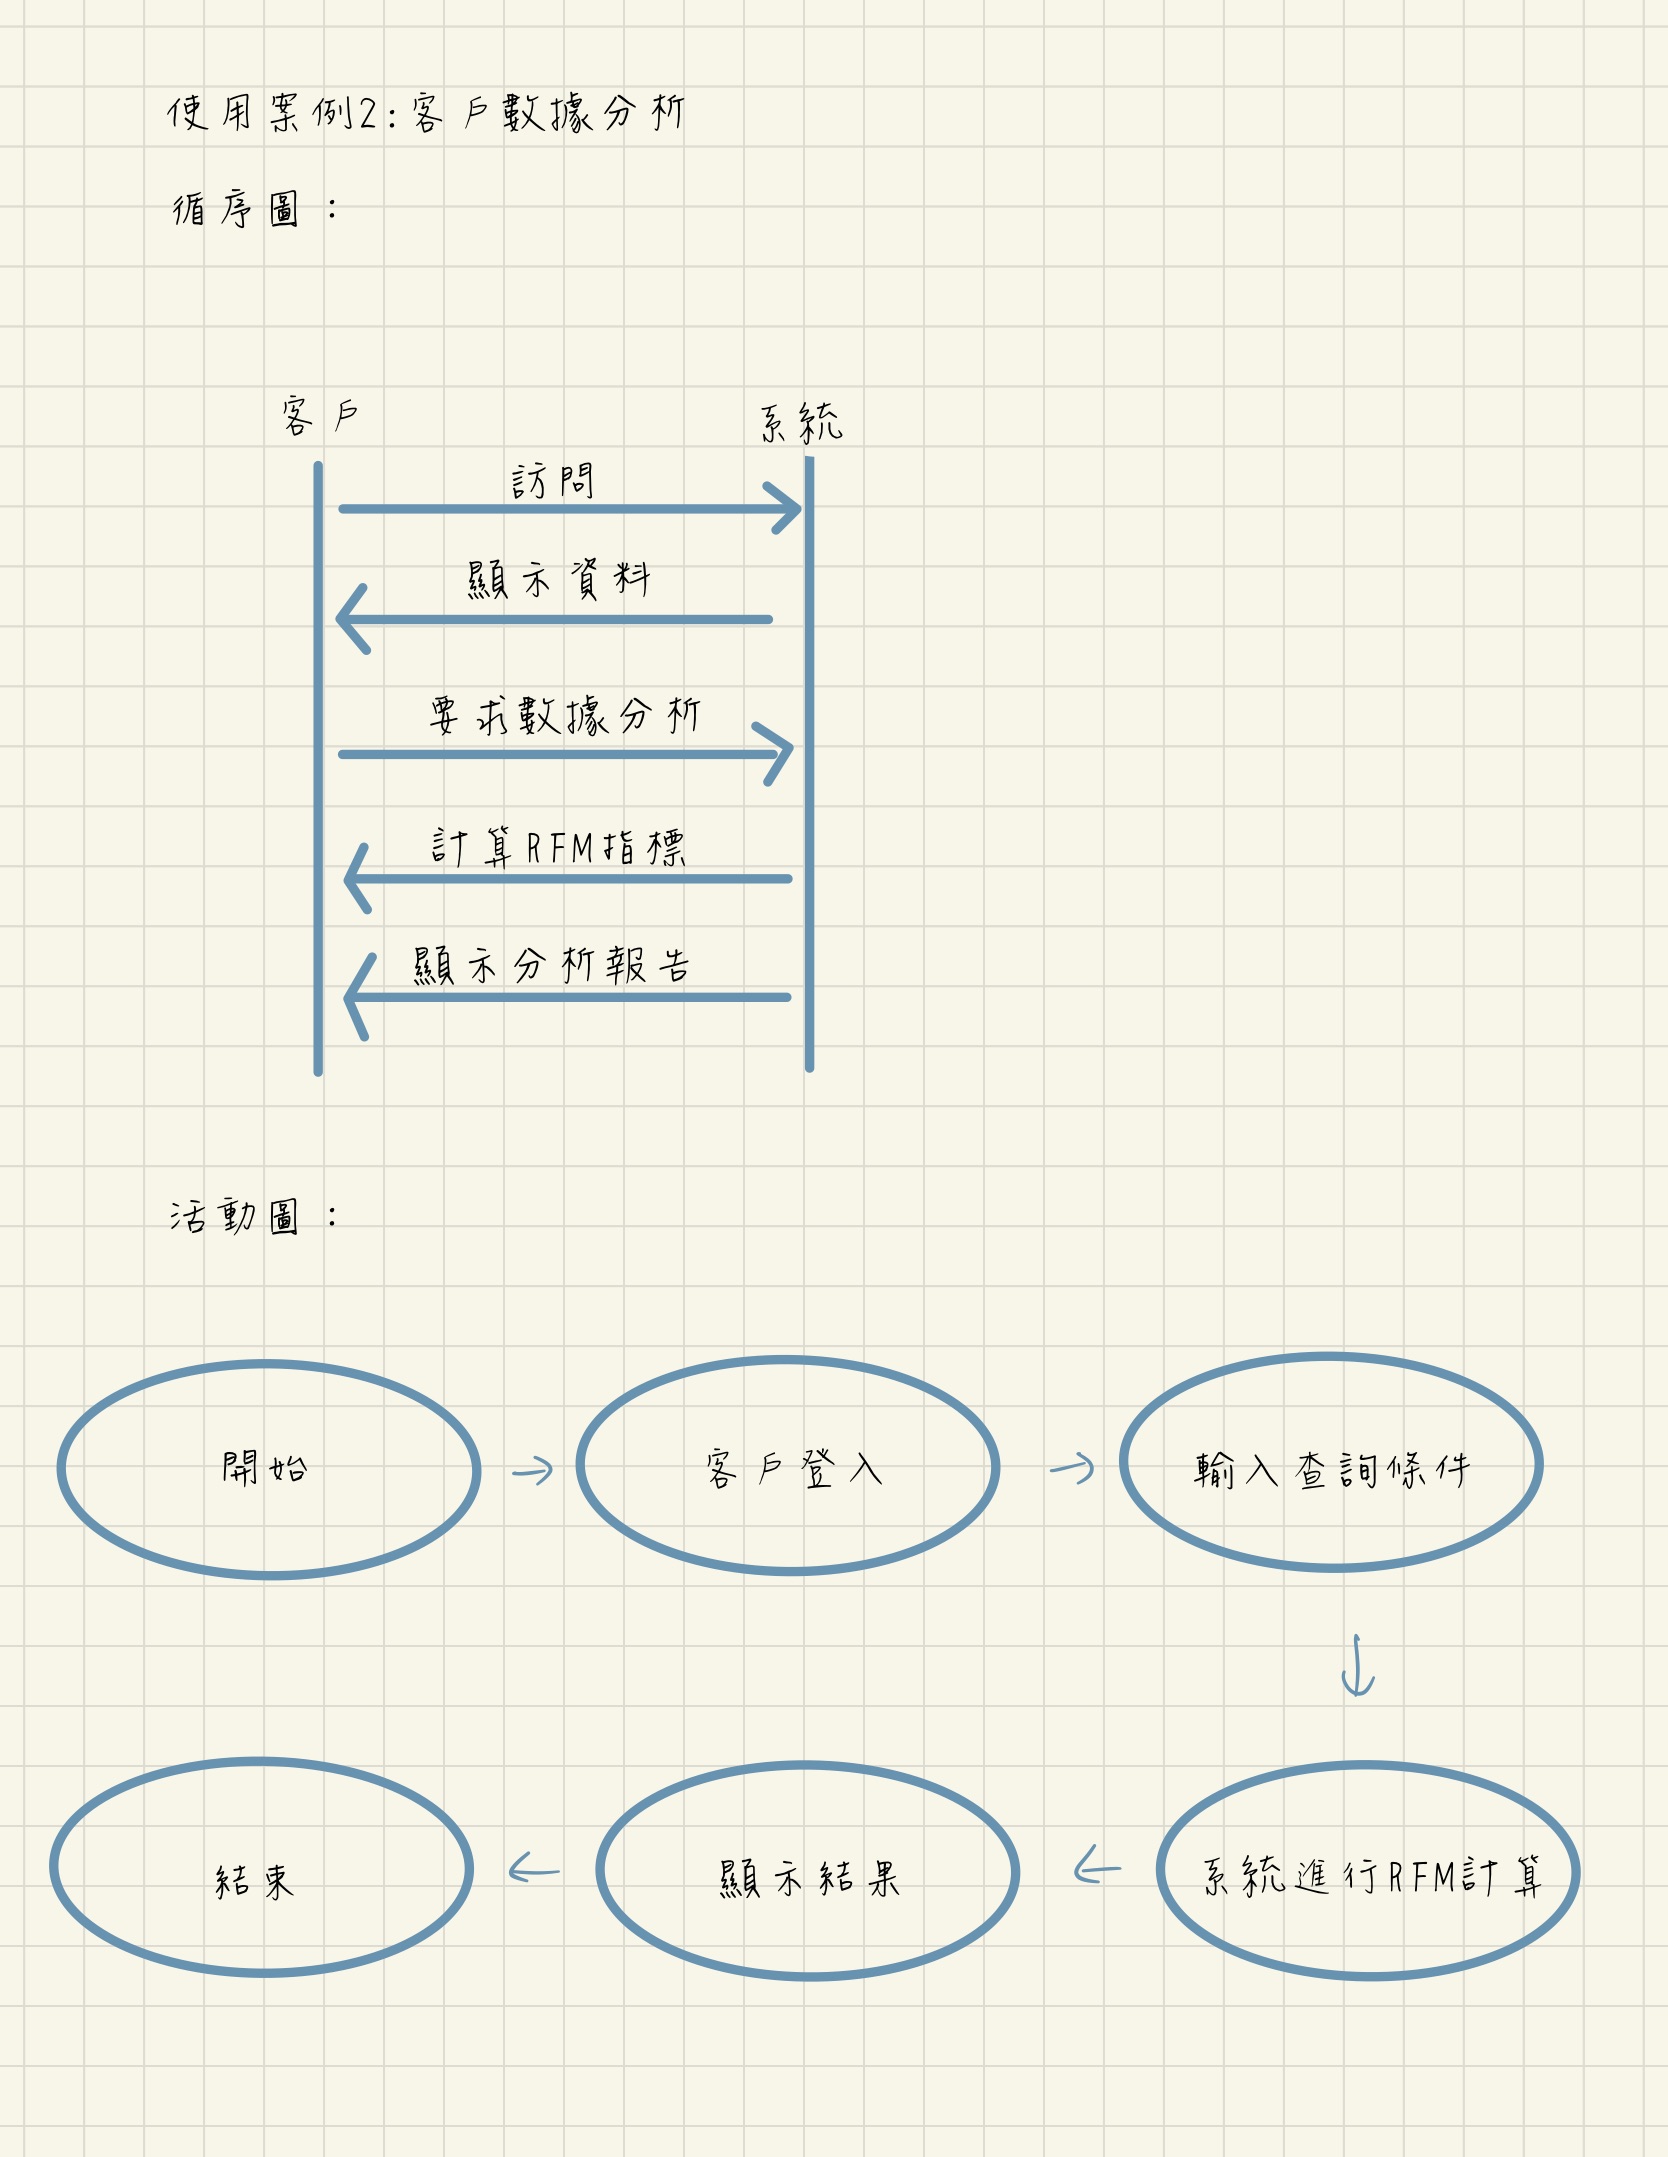 使用案例2:客戶數據分析
循序圖：
客戶
系統
訪問
顯示資料
要求數據分析
計算RFM指標
顯示分析報告
活動圖：
開始
客戶登入
輸入查詢條件
系統進行RFM計算
顯示結果
結束